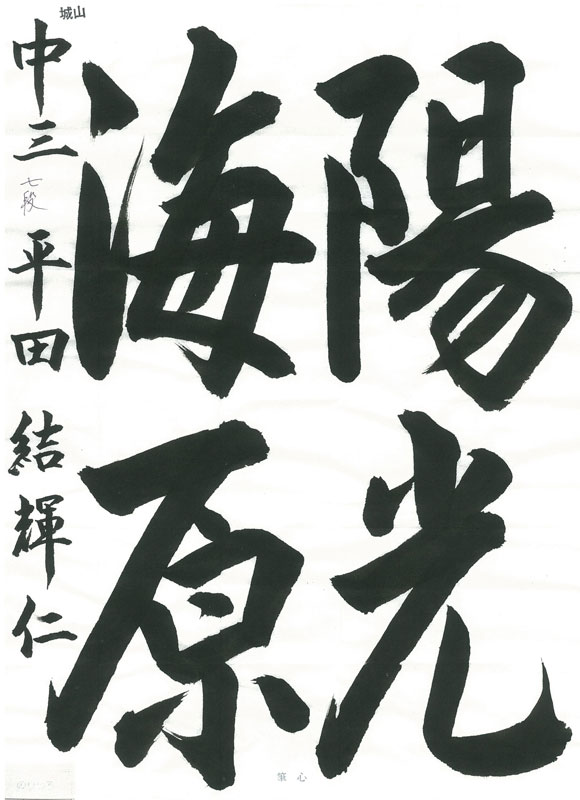 陽光
海原
城山
中三 七段 平田 結輝仁
心筆